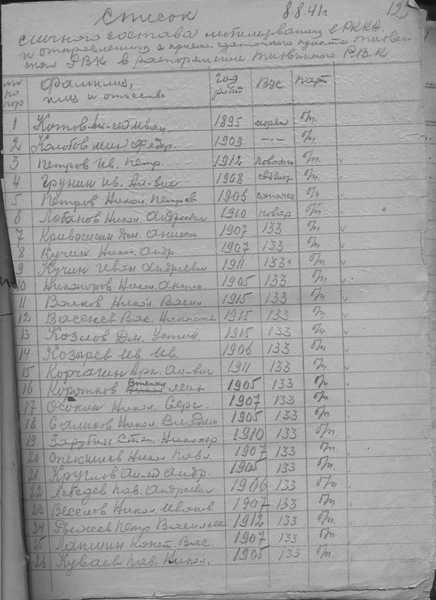 Список
8 8 41г
12
личного состава мобилизованных в РККА
и отправленных с приемо сдаточного пункта
РВК в распоряжение РВК
№№ по пор
Фамилия, имя и отчество
Год рожд
ВУС
Парт
1 Котов 1895 б/п
2 Колобов Федр. 1909 —„— б/п
3 Петров Ив. Петр. 1912 б/п
4 Грунин Ив. Ал-вич 1908 б/п
5 Петров Никол. Петров 1906 б/п
6 Лобанов Никол. Андреевич 1910 повар б/п
7 Кривошеин Дм. 1907 133 б/п
8 Кучин Никол. Андр. 1907 133 б/п
9 Кучин Иван Андреевич 1911 133 б/п
10 Никаноров Никол. 1905 133 б/п
11 Волков Никол. Васил 1915 133 б/п
12 Васенев Вас. 1915 133 б/п
13 Козлов Дм. Устин 1915 133 б/п
14 Козырев Ив. Ив. 1906 133 б/п
15 Корчагин Арк. Ал-вич 1911 133 б/п
16 Коротков 1905 133 б/п
17 Осокин Никол. Серг. 1907 133 б/п
18 Никол. 1905 133 б/п
19 Зарубин Степ. Никанор 1910 133 б/п
20 Никол. Павл 1907 133 б/п
21 Круглов Андр. 1905 133 б/п
22 Лебедев Пав. Андреевич 1906 133 б/п
23 Веселов Никол. Иванов 1907 133 б/п
24 Петр Васильев 1912 133 б/п
25 Конст. Вас. 1907 133 б/п
26 Куваев Пав. Никол. 1905 133 б/п